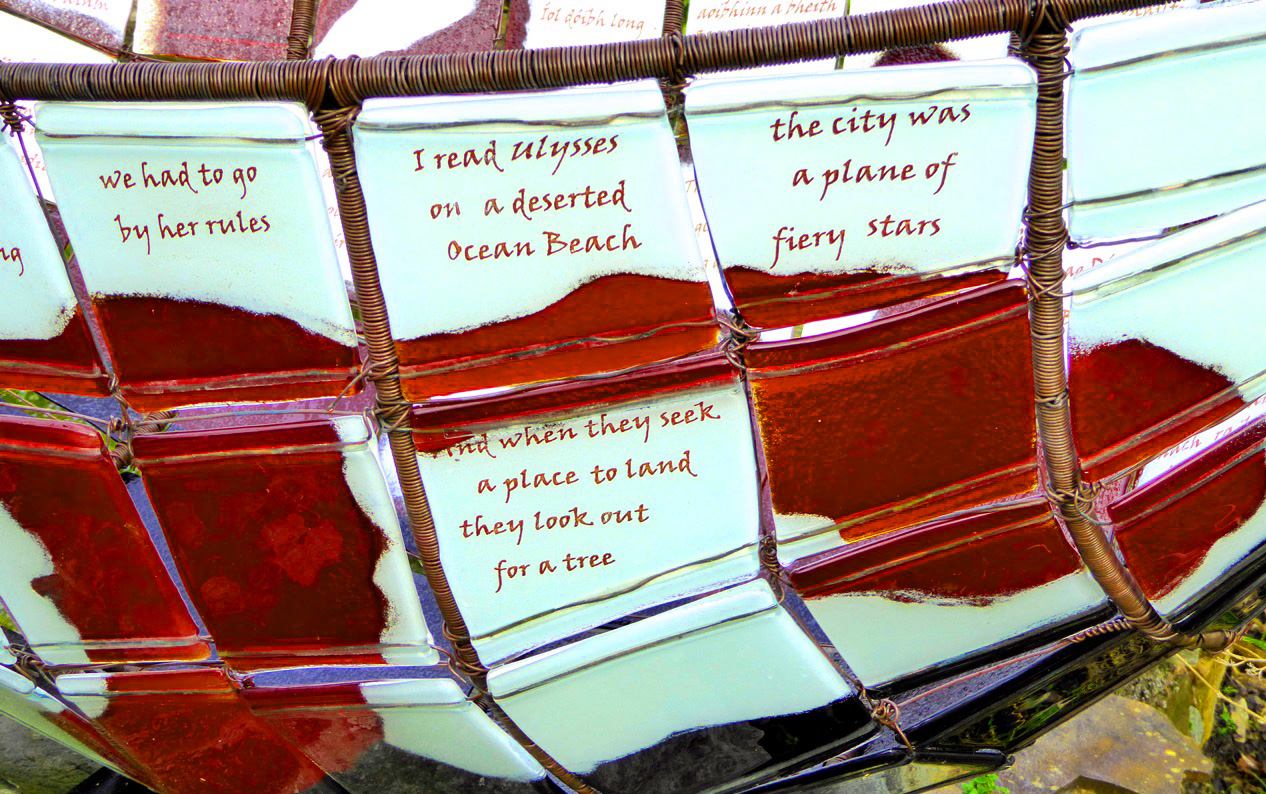 fol dóibh long
aoibhinn a bheith
we had to go
by her rules
I read Ulysses
on a deserted
Ocean Beach
the city was
a plane of
fiery stars
and when they seek
a place to land
they look out
for a tree